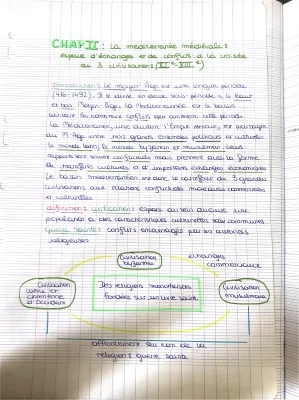 CHAP II : La méditerranée médiévale :
espace d'échanges et de conflits à la croisée
de 3 civilisations (XIe - XIIIe)
Introduction : Le moyen-Age est une longue période
(476-1492). Il se divise en deux sous période, le haut
et bas Moyen-Age. La Méditerranée est le bassin
autour les nombreux conflits qui animent cette période
La Méditerranée, unie durant l'Empire romain, est partagée
au M-Age entre trois grands ensembles politiques et culturels
le monde latin, le monde byzantin et musulman. Leurs
rapports sont souvent conflictuels mais prennent aussi la forme
de transferts culturels et d'importants échanges économiques
Le bassin méditerranéen est donc le carrefour de 3 grandes
civilisations aux relations conflictuelles mais aussi commerciales
et culturelles
civilisation : espace au sein duquel une
population a des caractéristiques culturelles communes
guerre sainte : conflits encouragés par les autorités
religieuses
civilisation
byzantine
échanges
commerciaux
civilisation
latine et
chrétienne
d'occident
Des religions monothéistes
fondées sur un livre sacré
civilisation
musulmane
affrontement au nom de la
religion : guerre sainte